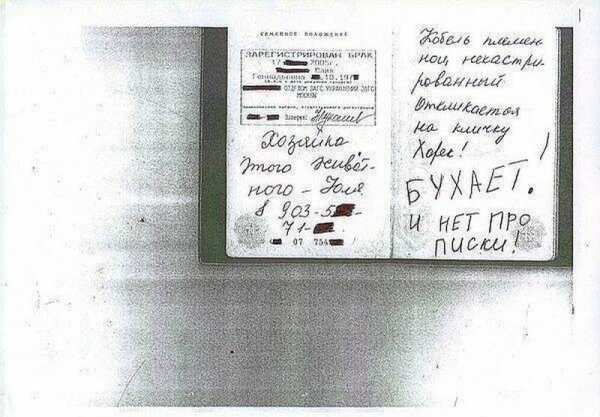 СЕМЕЙНОЕ ПОЛОЖЕНИЕ
ЗАРЕГИСТРИРОВАН БРАК
17 2005г.
Геннадьевна .10.197
ОТДЕЛОМ ЗАГС УПРАВЛЕНИЯ ЗАГС
МОСКВЫ
Хозяйка
этого живот-
ного - Юля
8 903-5 -
71-
07 754
Кобель племен
ной некастри
рованный
Откликается
на кличку
Хорек!
БУХАЕТ.
И НЕТ ПРО
ПИСКИ!